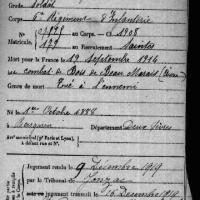 Grade Soldat
6e Régiment d'Infanterie
N° au Corps. — Cl. 1908
Matricule. 177 au Recrutement Saintes
Mort pour la France le 19 Septembre 1914
au combat de Bois de Beau Marais (Aisne)
Genre de mort Tué à l'ennemi
Né le 1er Octobre 1888
à Département Deux Sèvres
Arr¹ municipal (pʳ Paris et Lyon),
à défaut rue et N°.
Jugement rendu le 9 Décembre 1919
par le Tribunal de Jonzac
jugement transcrit le 16 Décembre 1919